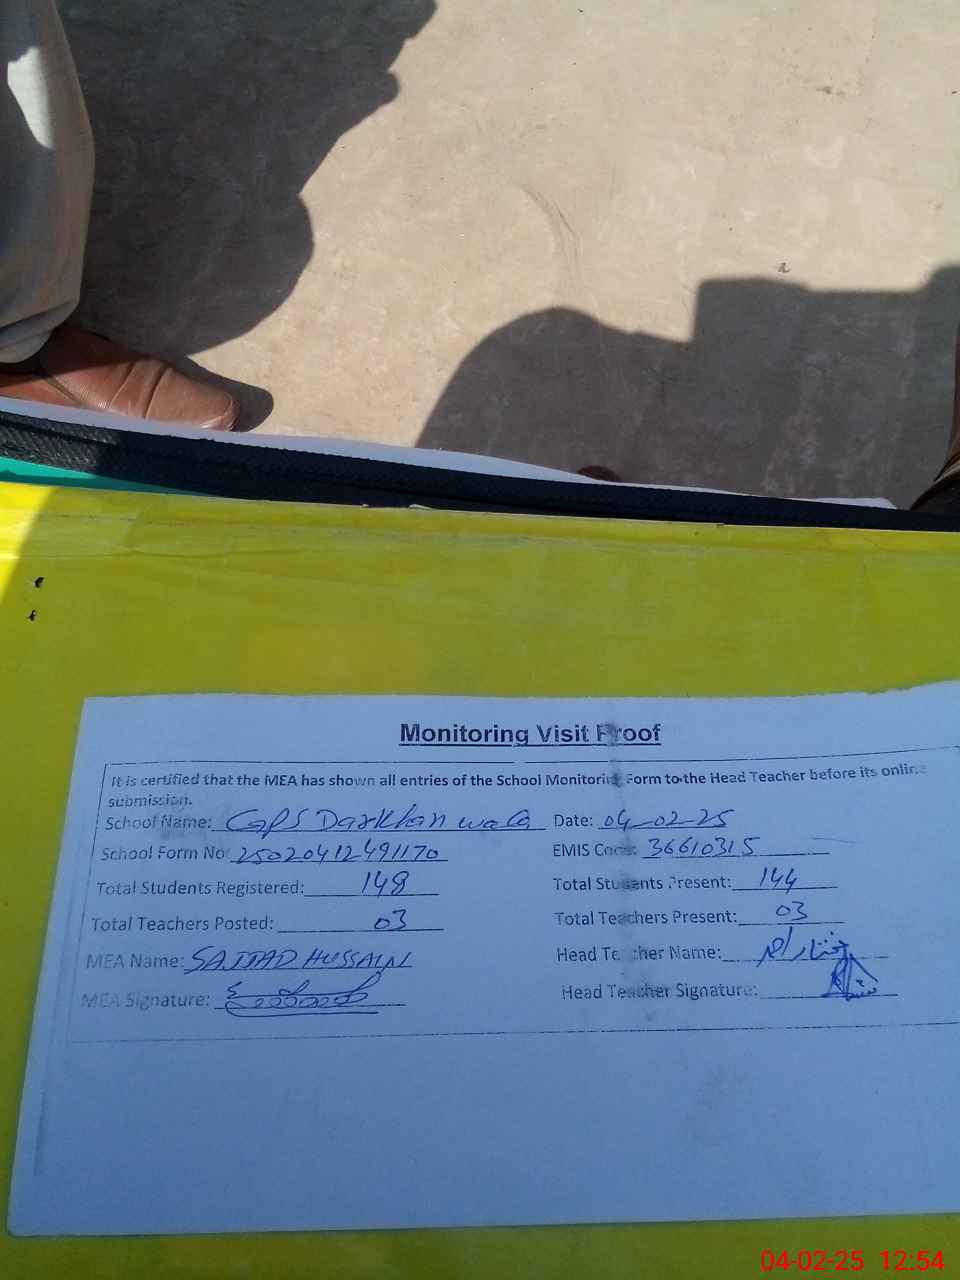 Monitoring Visit Proof
It is certified that the MEA has shown all entries of the School Monitoring Form to the Head Teacher before its online
submission.
School Name: GPS Darkhan wala Date: 04-02-25
School Form No: 25020412491170 EMIS Code: 36610315
Total Students Registered: 148 Total Students Present: 144
Total Teachers Posted: 03 Total Teachers Present: 03
MEA Name: SAJJAD HUSSAIN Head Teacher Name:
MEA Signature: Head Teacher Signature:
04-02-25 12:54